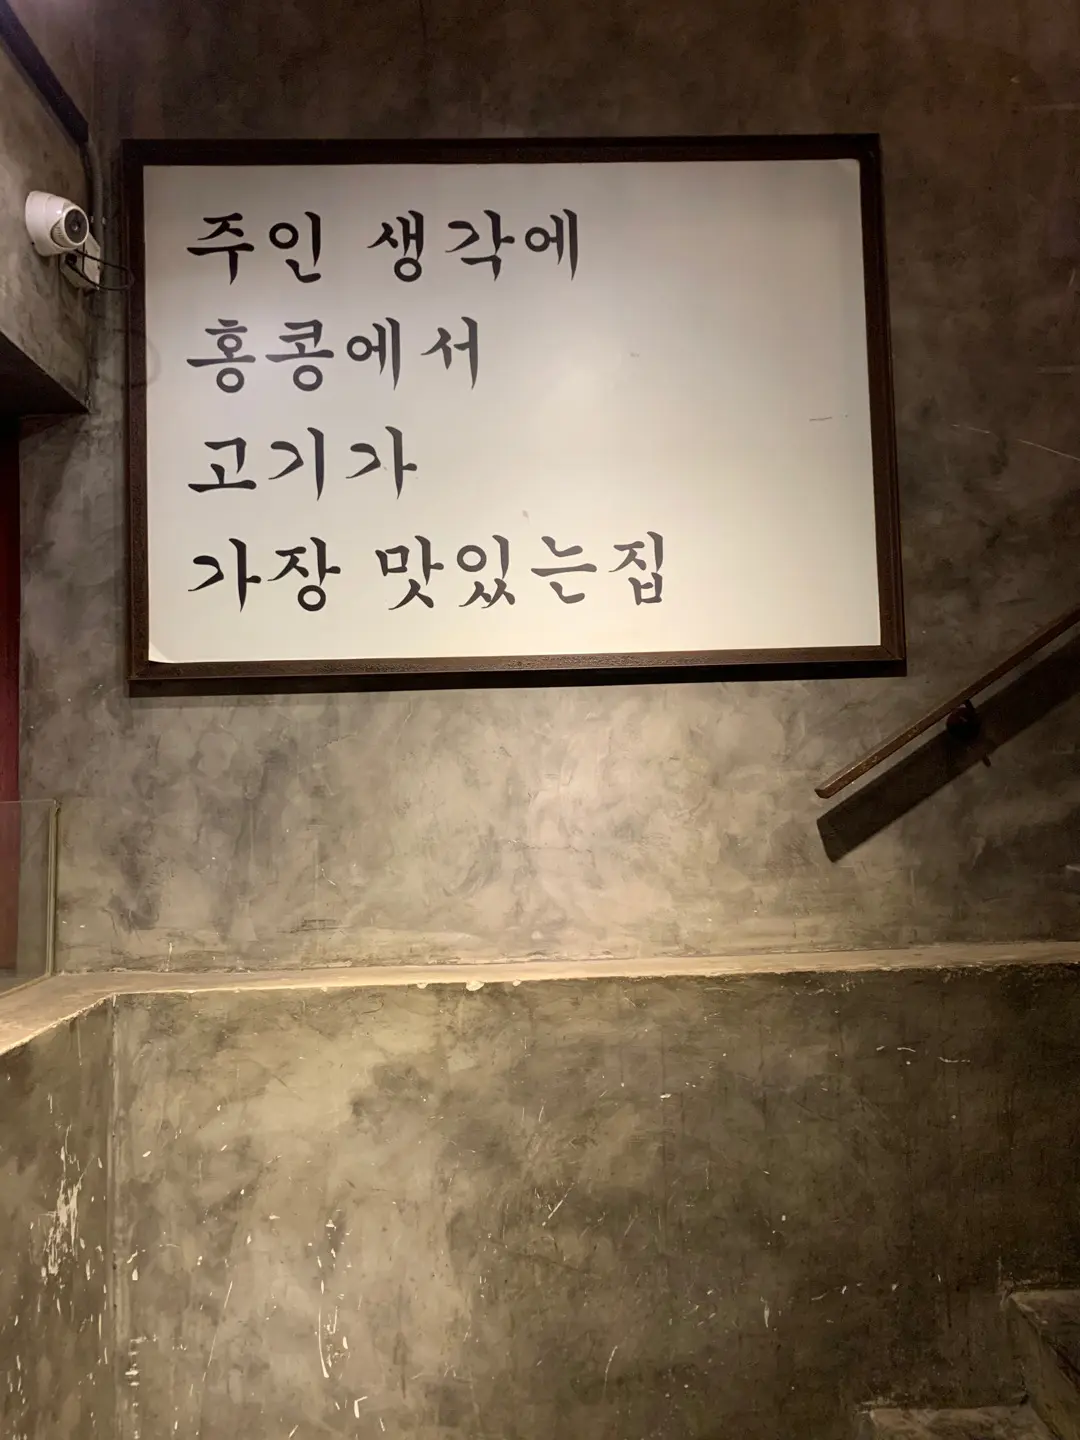 주인 생각에
홍콩에서
고기가
가장 맛있는집